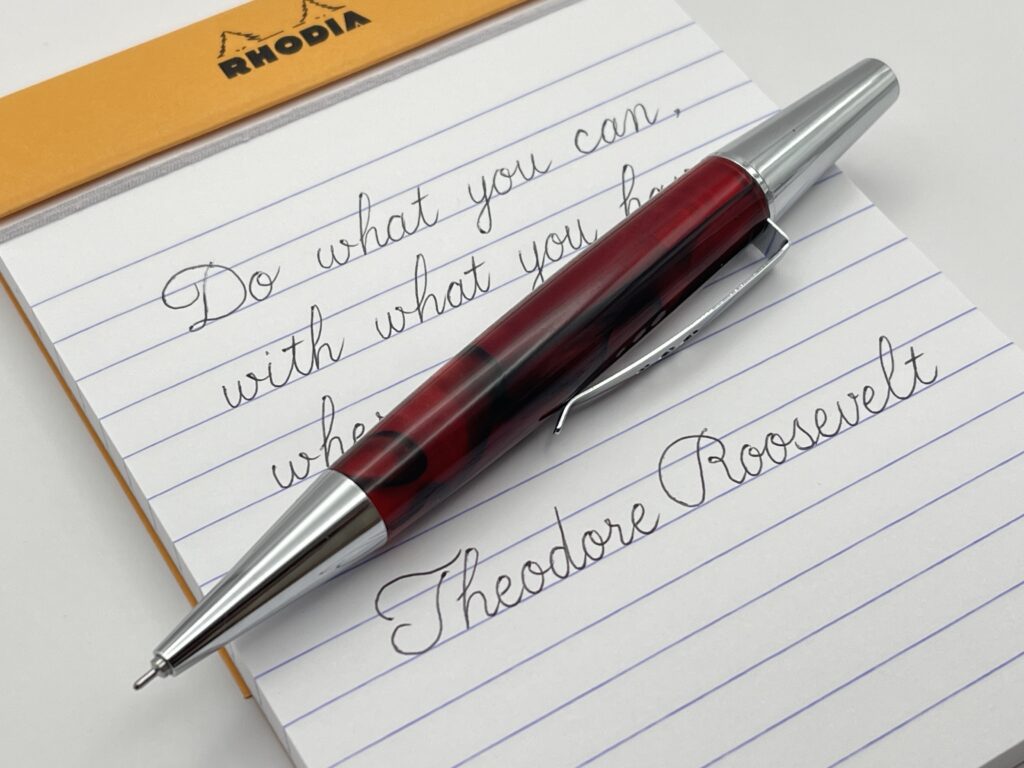 RHODIA
Do what you can,
with what you
Theodore Roosevelt